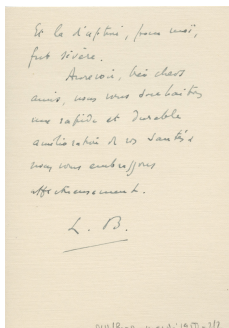 Et la rupture, pour moi,
fut sévère.
Au revoir, très chers
amis, nous vous souhaitons
une rapide et durable
amélioration de vos santés
nous vous embrassons
affectueusement.
L. B.